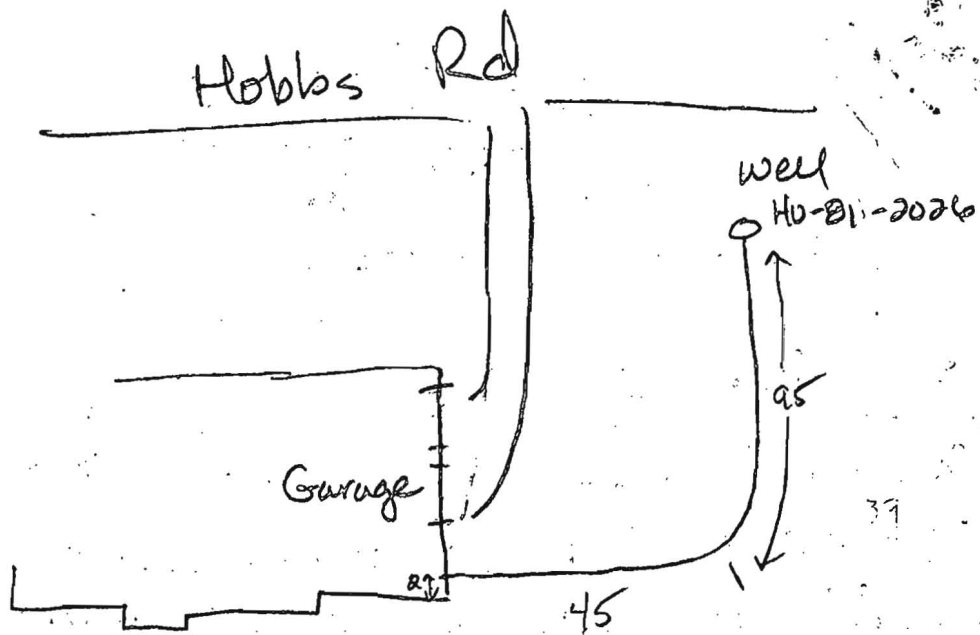 Hobbs Rd
well
HO-81-2026
95
Garage
2
45